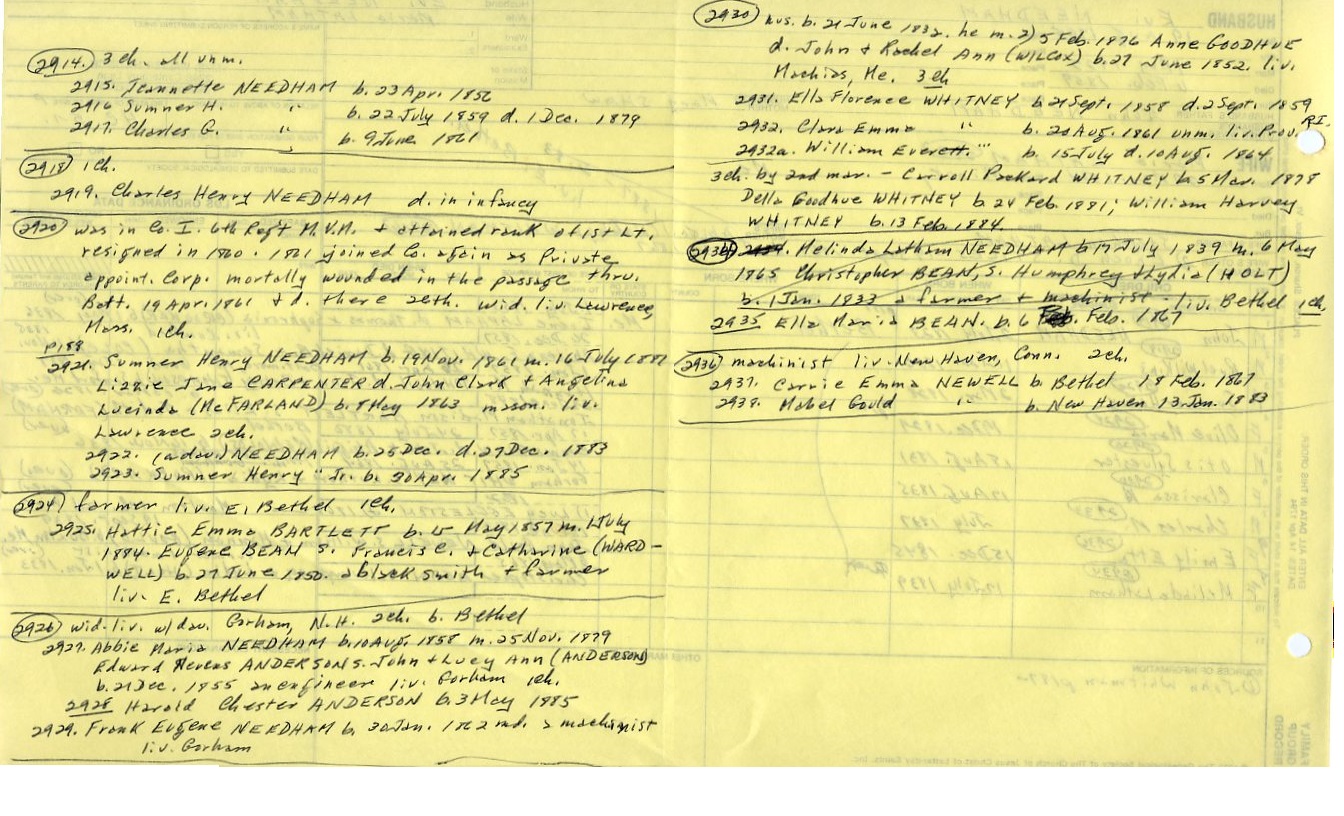 2914. 3 ch. all unm.
2915. Jeannette NEEDHAM b. 23 Apr. 1856
2916 Sumner H. " b. 22 July 1859 d. 1 Dec. 1879
2917. Charles G. " b. 9 June 1861
2918 1 ch.
2919. Charles Henry NEEDHAM d. in infancy
2920 was in Co. I. 6th Regt M.V.M. + attained rank of 1st Lt.
resigned in 1860. 1861 joined Co. again as Private
appoint. Corp. mortally wounded in the passage thru.
Balt. 19 Apr. 1861 + d. there 20th. wid. liv. Lawrence,
Mass. 1 ch.
p188
2921. Sumner Henry NEEDHAM b. 19 Nov. 1861 m. 16 July 1882
Lizzie Jane CARPENTER d. John Clark + Angelina
Lucinda (McFARLAND) b. 8 May 1863 mason. liv.
Lawrence 2 ch.
2922. (a dau.) NEEDHAM b. 25 Dec. d. 27 Dec. 1883
2923. Sumner Henry " Jr. b. 30 Apr. 1885
2924 farmer liv. E. Bethel 1 ch.
2925. Hattie Emma BARTLETT b. 15 May 1857 m. 1 July
1884. Eugene BEAN s. Francis C. + Catharine (WARD-
WELL) b. 27 June 1850. a black smith + farmer
liv. E. Bethel
2926 wid. liv. w/ dau. Gorham, N.H. 2 ch. b. Bethel
2927. Abbie Maria NEEDHAM b. 10 Aug. 1858 m. 25 Nov. 1879
Edward Stevens ANDERSON s. John + Lucy Ann (ANDERSON)
b. 21 Dec. 1855 an engineer liv. Gorham 1 ch.
2928 Harold Chester ANDERSON b. 3 May 1885
2929. Frank Eugene NEEDHAM b. 30 Jan. 1862 md. a machinist
liv. Gorham
2930 hus. b. 21 June 1832. he m. 2) 5 Feb. 1876 Anne GOODHUE
d. John + Rachel Ann (WILCOX) b. 27 June 1852. liv.
Machias, Me. 3 ch
2931. Ella Florence WHITNEY b. 21 Sept. 1858 d. 2 Sept. 1859
2932. Clara Emma " b. 20 Aug. 1861 unm. liv. Prov. RI.
2932a. William Everett. " b. 15 July d. 10 Aug. 1864
3 ch. by 2nd mar. - Carroll Packard WHITNEY b. 5 Mar. 1878
Della Goodhue WHITNEY b. 24 Feb. 1881; William Harvey
WHITNEY b. 13 Feb. 1884.
2934 Melinda Latham NEEDHAM b. 17 July 1839 m. 6 May
1865 Christopher BEAN, s. Humphrey + Lydia (HOLT)
b. 1 Jan. 1833 a farmer + machinist - liv. Bethel 1 ch.
2935 Ella Maria BEAN. b. 6 Feb. 1867
2936 machinist liv. New Haven, Conn. 2 ch.
2937. Carrie Emma NEWELL b. Bethel 18 Feb. 1867
2938. Mabel Gould " b. New Haven 13 Jan. 1883